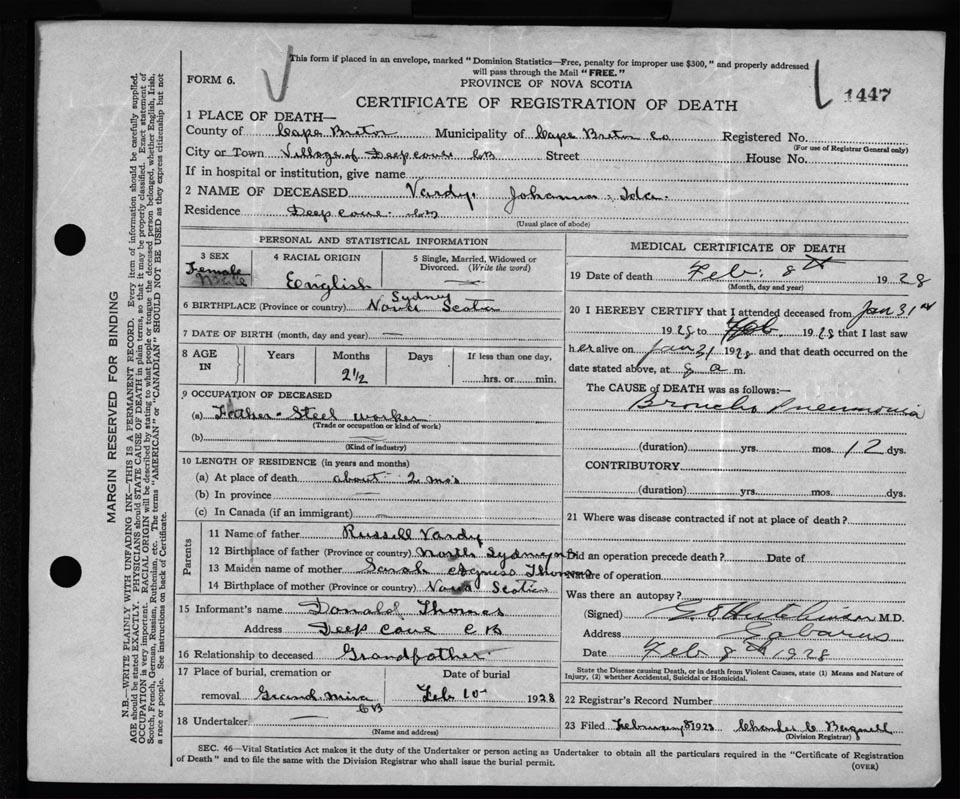 This form if placed in an envelope, marked "Dominion Statistics—Free, penalty for improper use $300," and properly addressed
will pass through the Mail "FREE."
FORM 6.
PROVINCE OF NOVA SCOTIA
CERTIFICATE OF REGISTRATION OF DEATH
1447
1 PLACE OF DEATH—
County of Cape Breton Municipality of Cape Breton Co Registered No.
(For use of Registrar General only)
City or Town Village of Deep cove CB Street House No.
If in hospital or institution, give name
2 NAME OF DECEASED Vardy, Johanna Ida
Residence Deep cove
(Usual place of abode)
PERSONAL AND STATISTICAL INFORMATION
3 SEX Female
4 RACIAL ORIGIN English
5 Single, Married, Widowed or Divorced. (Write the word) —
6 BIRTHPLACE (Province or country) Sydney Nova Scotia
7 DATE OF BIRTH (month, day and year) —
8 AGE IN Years Months Days If less than one day,
2 1/2 hrs. or min.
9 OCCUPATION OF DECEASED
(a) Father - Steel worker
(Trade or occupation or kind of work)
(b) —
(Kind of industry)
10 LENGTH OF RESIDENCE (in years and months)
(a) At place of death about 2 mo's
(b) In province —
(c) In Canada (if an immigrant) —
Parents
11 Name of father Russell Vardy
12 Birthplace of father (Province or country) North Sydney CB
13 Maiden name of mother Sarah Agness Thomas
14 Birthplace of mother (Province or country) Nova Scotia
15 Informant's name Donald Thomas
Address Deep Cove CB
16 Relationship to deceased Grandfather
17 Place of burial, cremation or Date of burial
removal Grand mira CB Feb 10 1928
18 Undertaker —
(Name and address)
MEDICAL CERTIFICATE OF DEATH
19 Date of death Feb. 8th 1928
(Month, day and year)
20 I HEREBY CERTIFY that I attended deceased from Jan 31st
1928 to Feb 1928 that I last saw
her alive on Jan 31 1928 and that death occurred on
date stated above, at 8 a m.
The CAUSE of DEATH was as follows:—
Broncho Pneumonia
(duration) yrs. mos. 12 dys.
CONTRIBUTORY
(duration) yrs. mos. dys.
21 Where was disease contracted if not at place of death?
Did an operation precede death? Date of
Nature of operation
Was there an autopsy?
(Signed) Hutchinson M.D.
Address Gabarus
Date Feb 8th 1928
State the Disease causing Death, or in death from Violent Causes, state (1) Means and Nature of
Injury, (2) whether Accidental, Suicidal or Homicidal.
22 Registrar's Record Number
23 Filed February 8 1928 Charles C Bagnell
(Division Registrar)
SEC. 46—Vital Statistics Act makes it the duty of the Undertaker or person acting as Undertaker to obtain all the particulars required in the "Certificate of Registration
of Death" and to file the same with the Division Registrar who shall issue the burial permit.
(OVER)
MARGIN RESERVED FOR BINDING
N.B.—WRITE PLAINLY WITH UNFADING INK—THIS IS A PERMANENT RECORD. Every item of information should be carefully supplied.
AGE should be stated EXACTLY. PHYSICIANS should STATE CAUSE OF DEATH in plain terms, so that it may be properly classified. Exact statement of
OCCUPATION is very important. RACIAL ORIGIN will be described by stating to what people or tongue the deceased person belonged, whether English, Irish,
Scotch, French, German, Russian, Ruthenian, etc. The terms "AMERICAN" or "CANADIAN" SHOULD NOT BE USED as they express citizenship but not
a race or people. See instructions on back of Certificate.